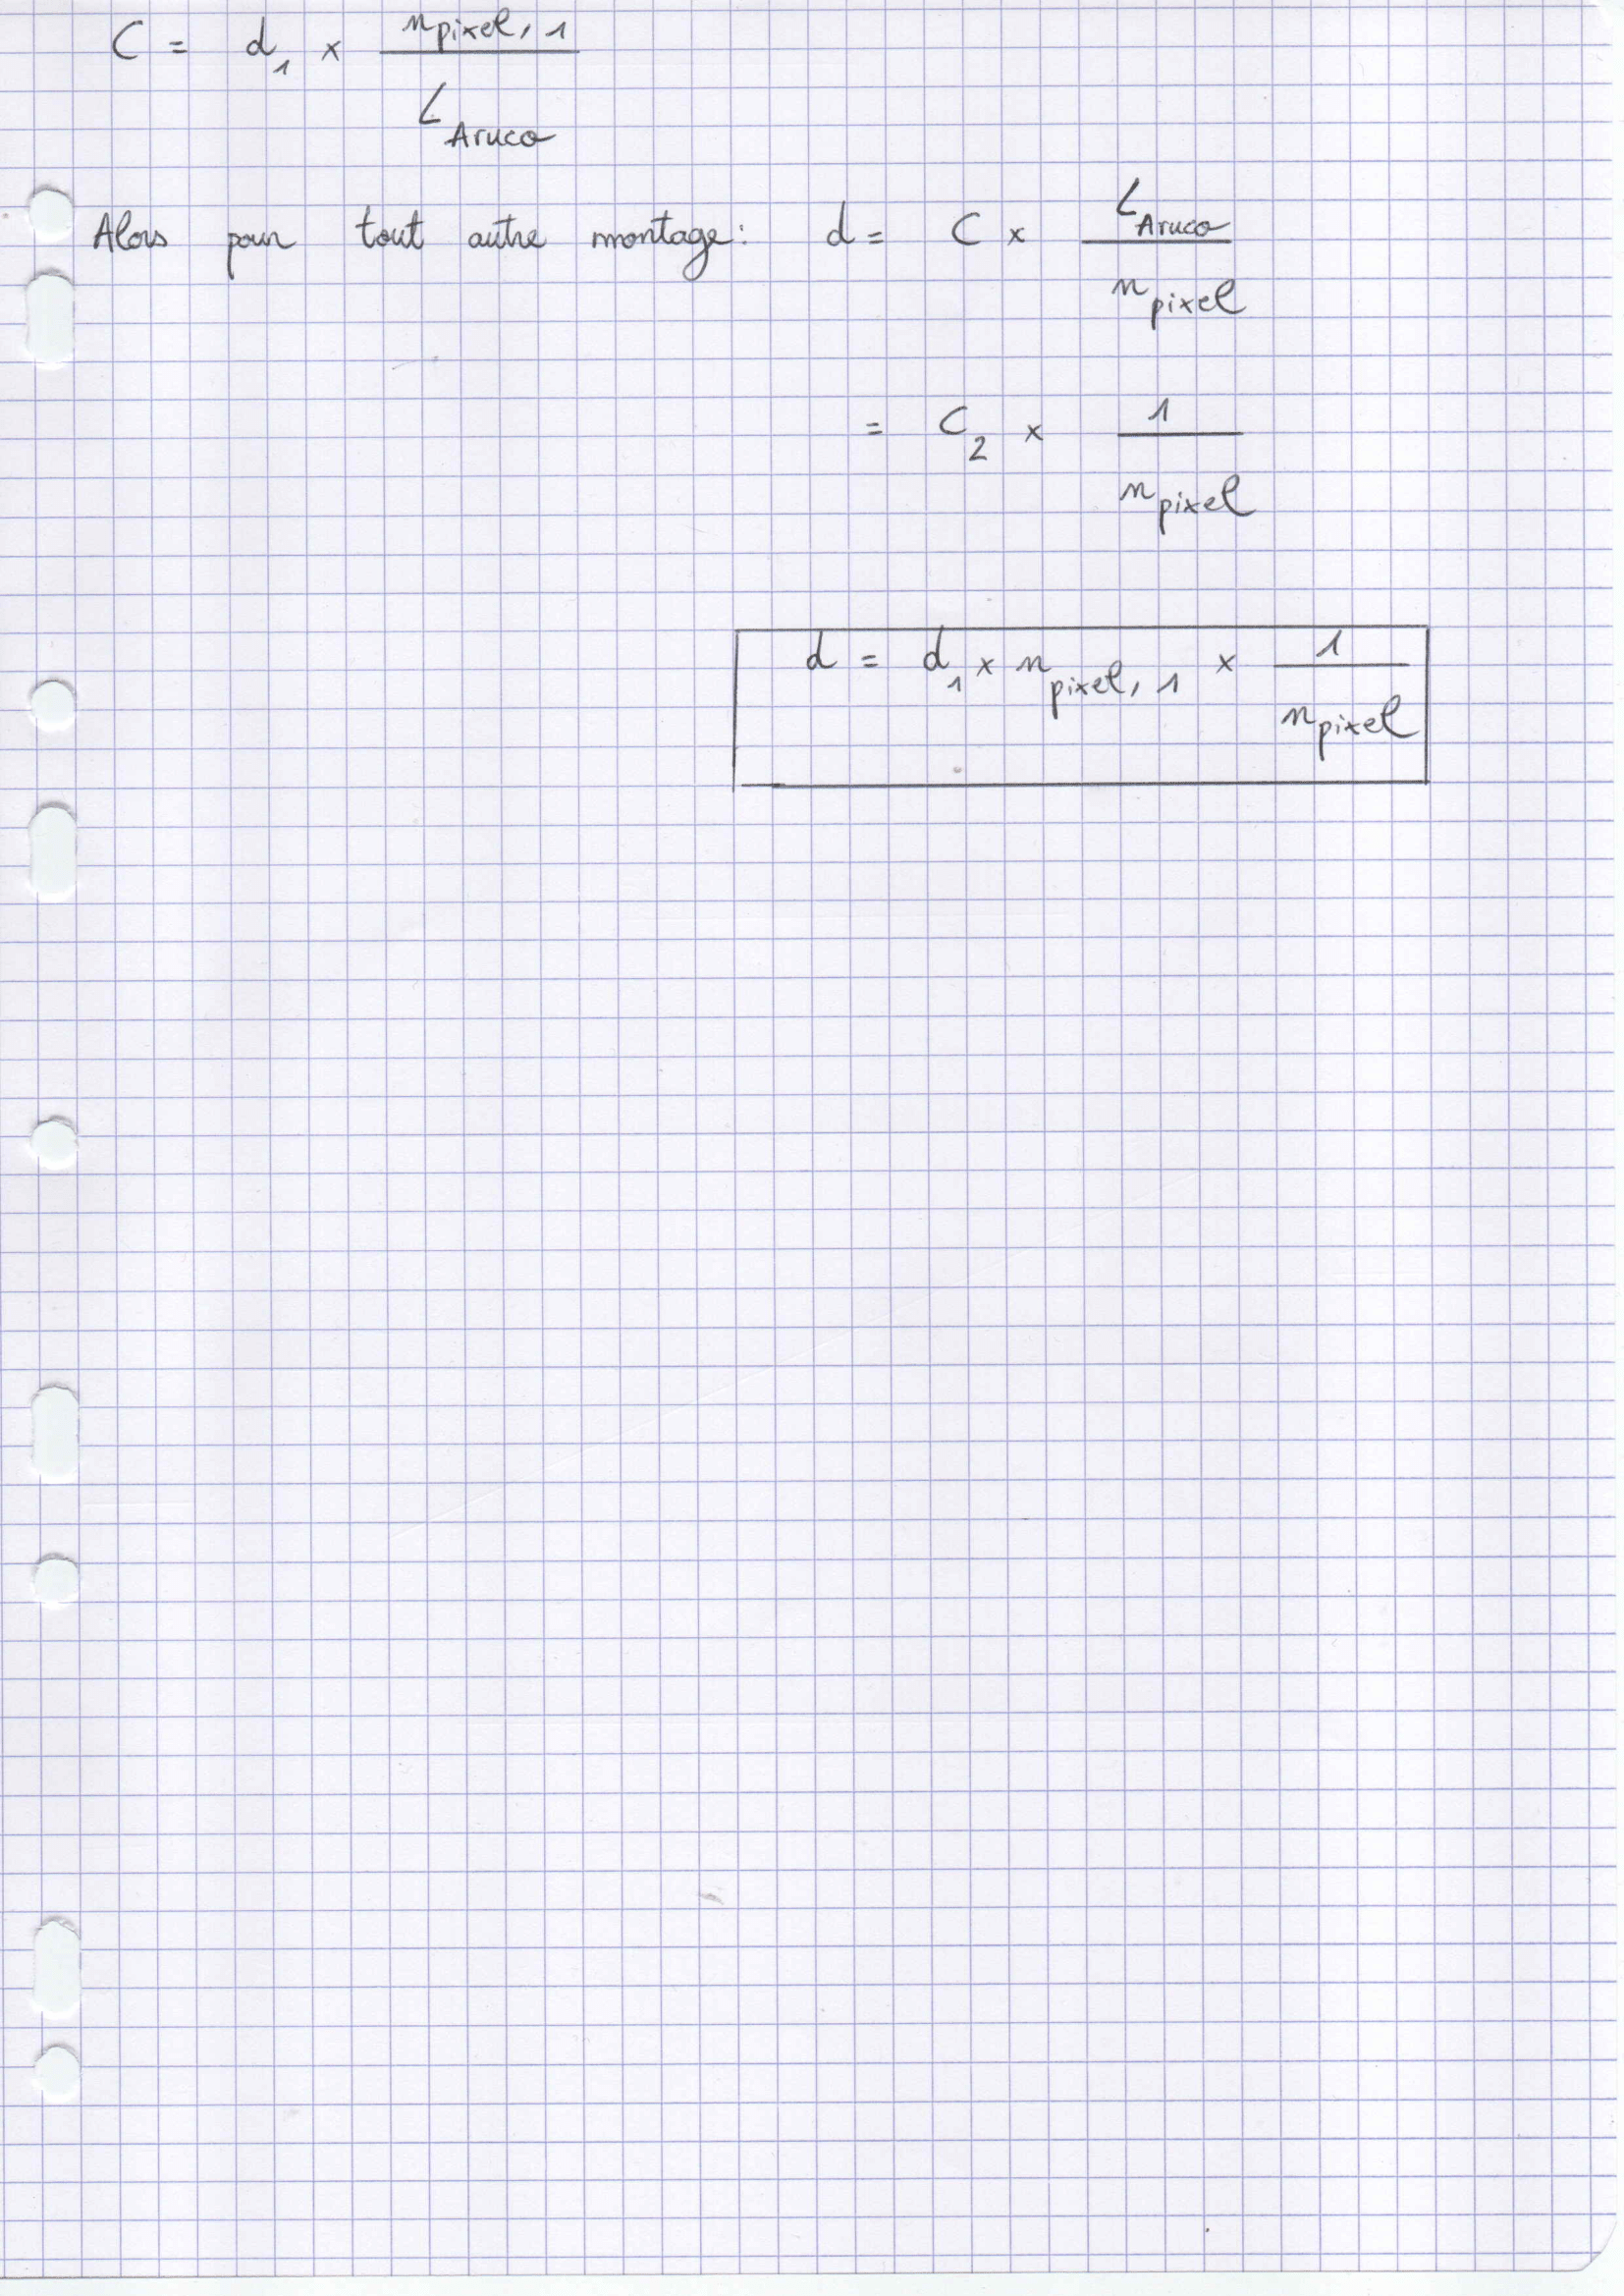 C = d₁ × n_pixel,1 / L_Aruco
Alors pour tout autre montage : d = C × L_Aruco / n_pixel
= C₂ × 1 / n_pixel
d = d₁ × n_pixel,1 × 1 / n_pixel